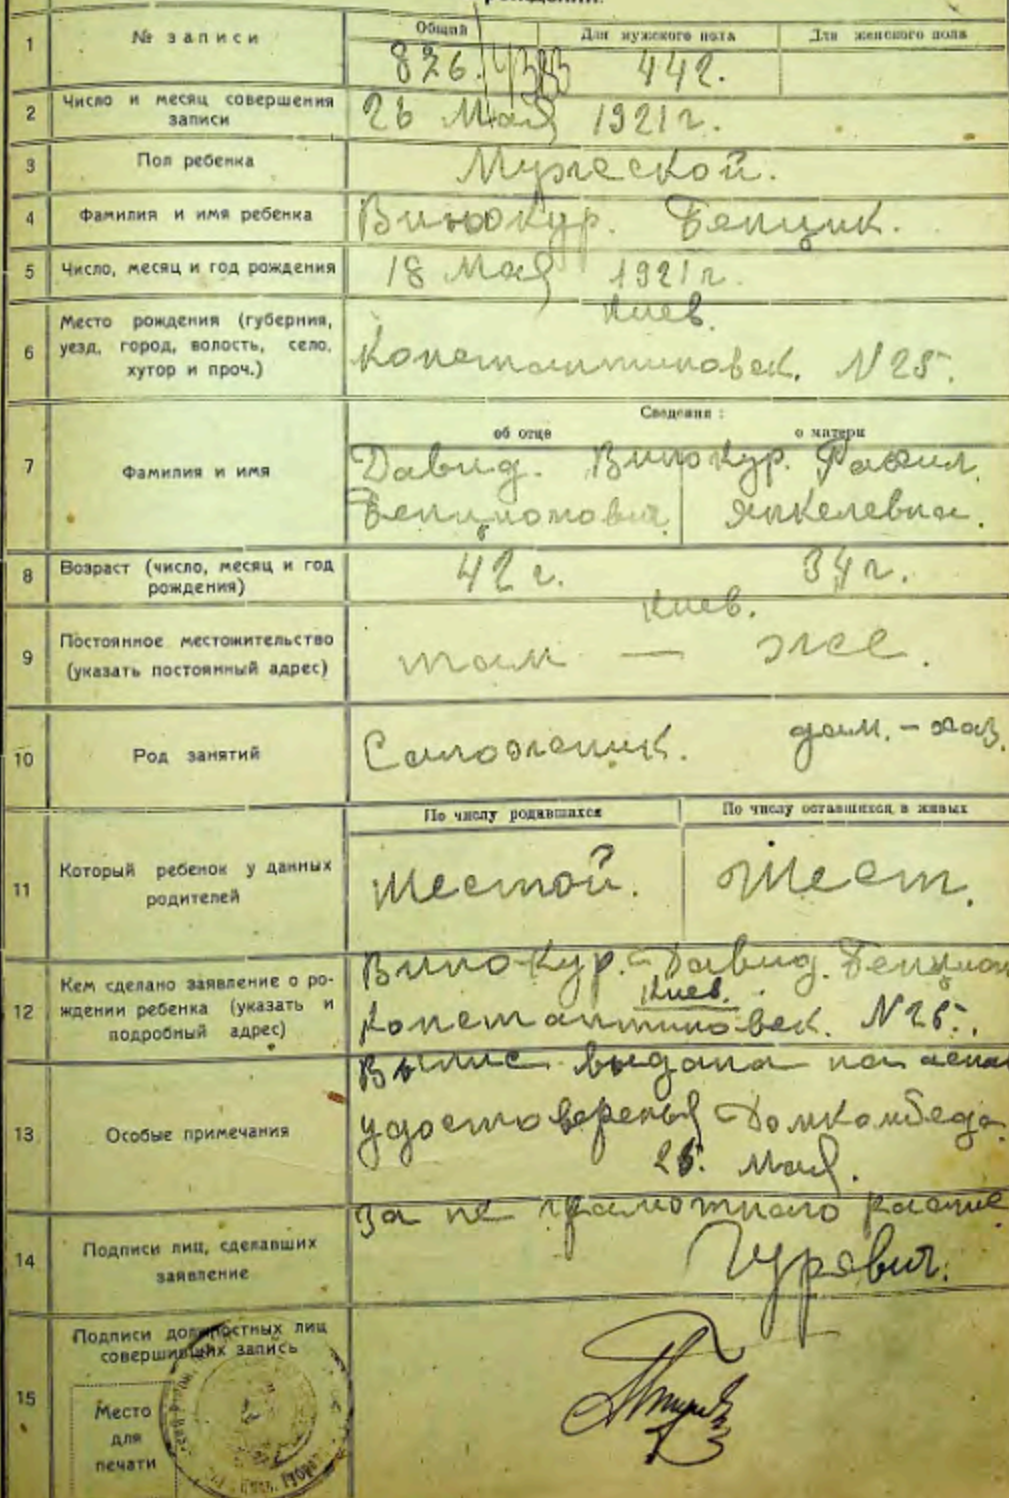 рождении.
1 № записи Общий Для мужского пола Для женского пола
826. 442.
2 Число и месяц совершения записи
26 Мая 1921 г.
3 Пол ребенка
Мужеской.
4 Фамилия и имя ребенка
Винокур. Бенцик.
5 Число, месяц и год рождения
18 Мая 1921 г.
6 Место рождения (губерния,
уезд, город, волость, село,
хутор и проч.)
Киев.
Константиновск. N 25.
Сведения:
об отце о матери
7 Фамилия и имя
Давид. Винокур. Рахил.
Бенционович Янкелевна.
8 Возраст (число, месяц и год
рождения)
42 г. 34 г.
9 Постоянное местожительство
(указать постоянный адрес)
Киев.
там — же.
10 Род занятий
Сапожник. дом. - хоз.
По числу родившихся По числу оставшихся в живых
11 Который ребенок у данных
родителей
Шестой. Шест.
12 Кем сделано заявление о ро-
ждении ребенка (указать и
подробный адрес)
Винокур. Давид. Бенцион
Киев.
Константиновск. N 25.
13 Особые примечания
выдана на
удостоверенья Домкомбеда
25. Мая.
14 Подписи лиц, сделавших
заявление
За не грамотного
Гуревич.
15 Подписи должностных лиц
совершивших запись
Место
для
печати